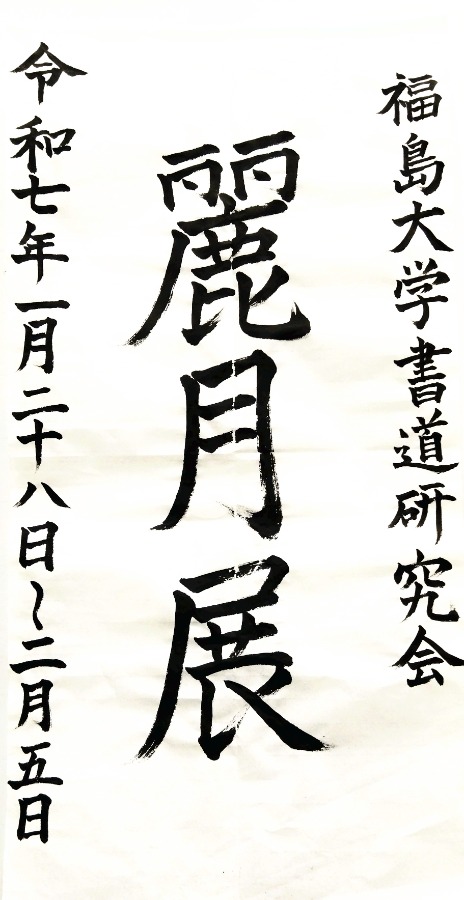 福島大学書道研究会
麗月展
令和七年一月二十八日～二月五日